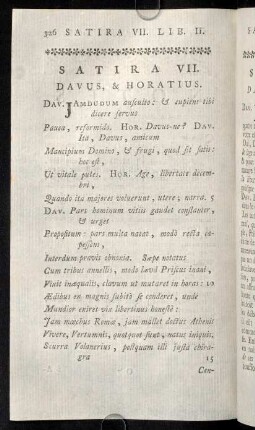 326 SATIRA VII. LIB. II.
SATIRA VII.
DAVUS, & HORATIUS.
DAV. JAMDUDUM ausculto: & cupiens tibi
dicere servus
Pauca, reformido. HOR. Davus-ne? DAV.
Ita, Davus, amicum
Mancipium Domino, & frugi, quod sit satis:
hoc est,
Ut vitale putes. HOR. Age, libertate decem-
bri,
Quando ita majores voluerunt, utere; narra. 5
DAV. Pars hominum vitiis gaudet constanter,
& urget
Propositum: pars multa natat, modò recta ca-
pessens,
Interdum pravis obnoxia. Sæpe notatus
Cum tribus annellis, modo lævâ Priscus inani,
Vixit inæqualis, clavum ut mutaret in horas: 10
Ædibus ex magnis subitò se conderet, unde
Mundior exiret vix libertinus honestè:
Jam mœchus Romæ, jam mallet doctus Athenis
Vivere, Vertumnis, quotquot sunt, natus iniquis.
Scurra Volanerius, postquam illi justa chira-
gra 15
Con-